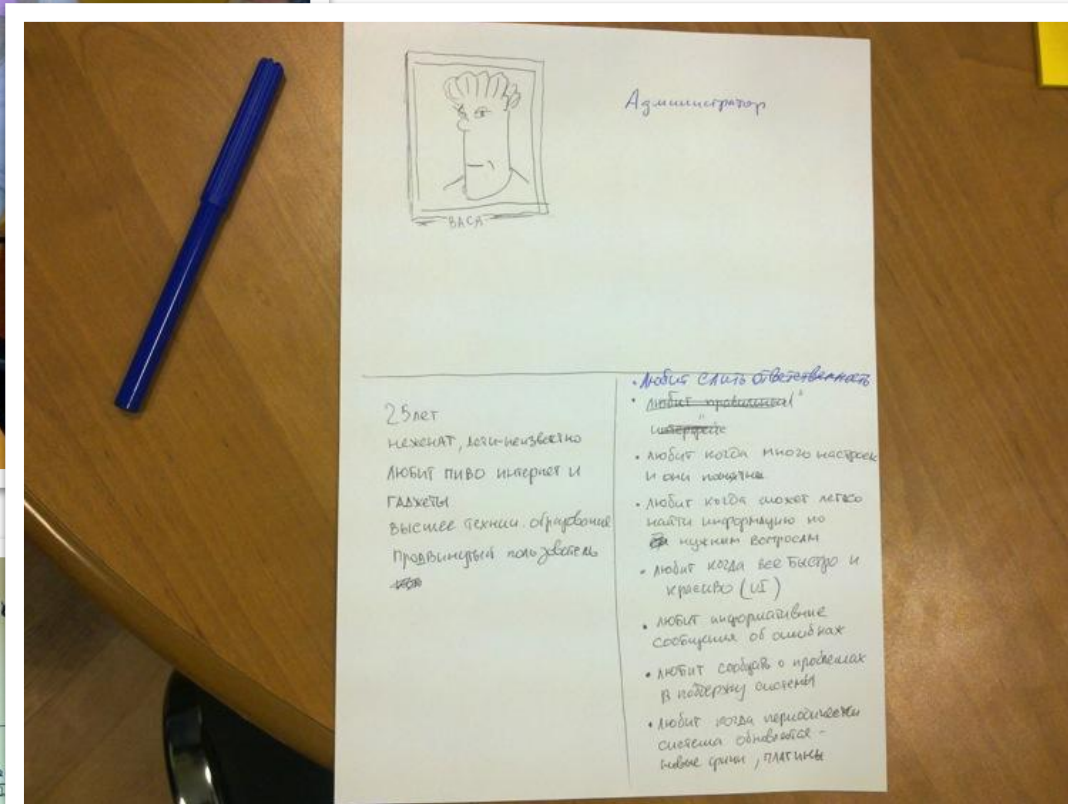 Администратор
ВАСЯ
25 лет
неженат, дети-неизвестно
любит пиво интернет и
гаджеты
высшее технич. образование
продвинутый пользователь
• любит слить ответственность
• любит правильный
интерфейс
• любит когда много настроек
и они понятны
• любит когда может легко
найти информацию по
нужным вопросам
• любит когда все быстро и
красиво (UI)
• любит информативные
сообщения об ошибках
• любит сообщать о проблемах
в поддержку системы
• любит когда периодически
система обновляется -
новые фичи, плагины